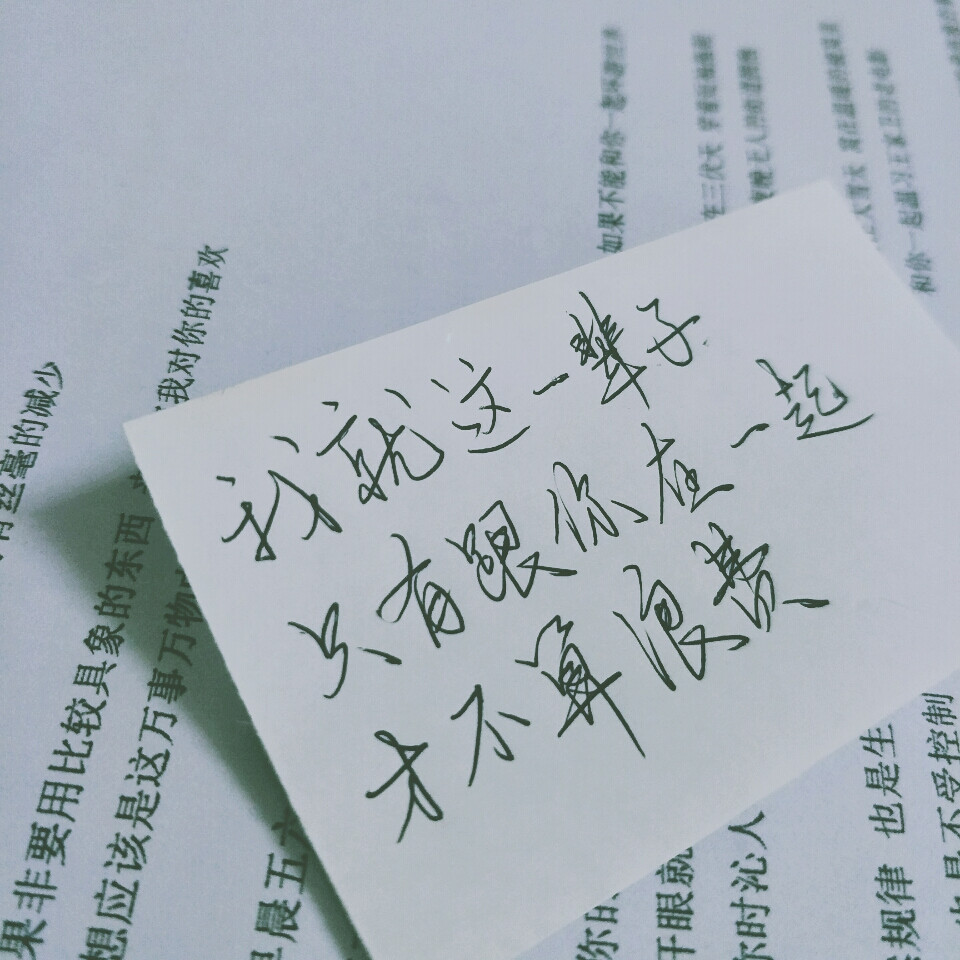 我就这一辈子
只有跟你在一起
才不算浪费
丝毫的减少
我对你的喜欢
果非要用比较具象的东西
想应该是这万事万物
晨五六
如果不能和你一起
三伏天
和你一起温习王家卫的老电影
你的
眼就
你时沁人
规律 也是生
也是不受控制